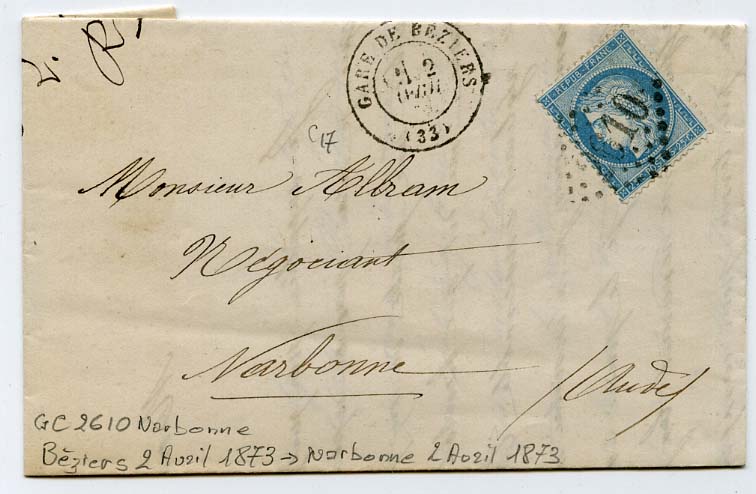 GARE DE BÉZIERS
2
(33)
REPUB. FRANC.
610
25
C17
Monsieur Allram
Négociant
Narbonne
(Aude)
GC 2610 Narbonne
Béziers 2 Avril 1873 → Narbonne 2 Avril 1873